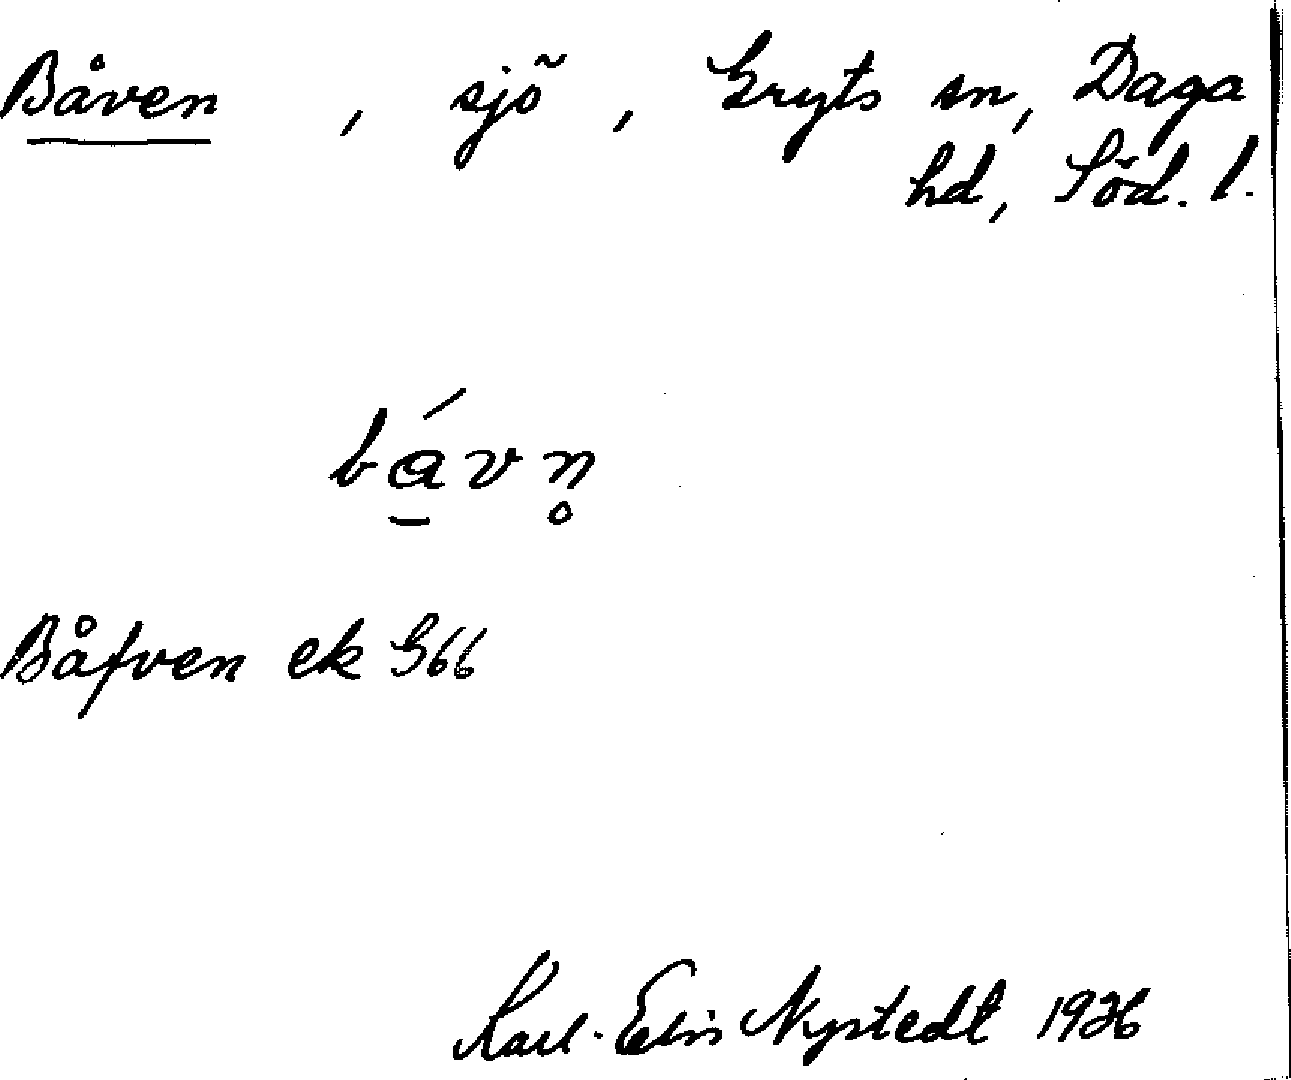 Båven, sjö, Gryts sn, Daga
hd, Söd. l.
bá̱vn̥
Båfven ek G66
Karl-Elis Nystedt 1936